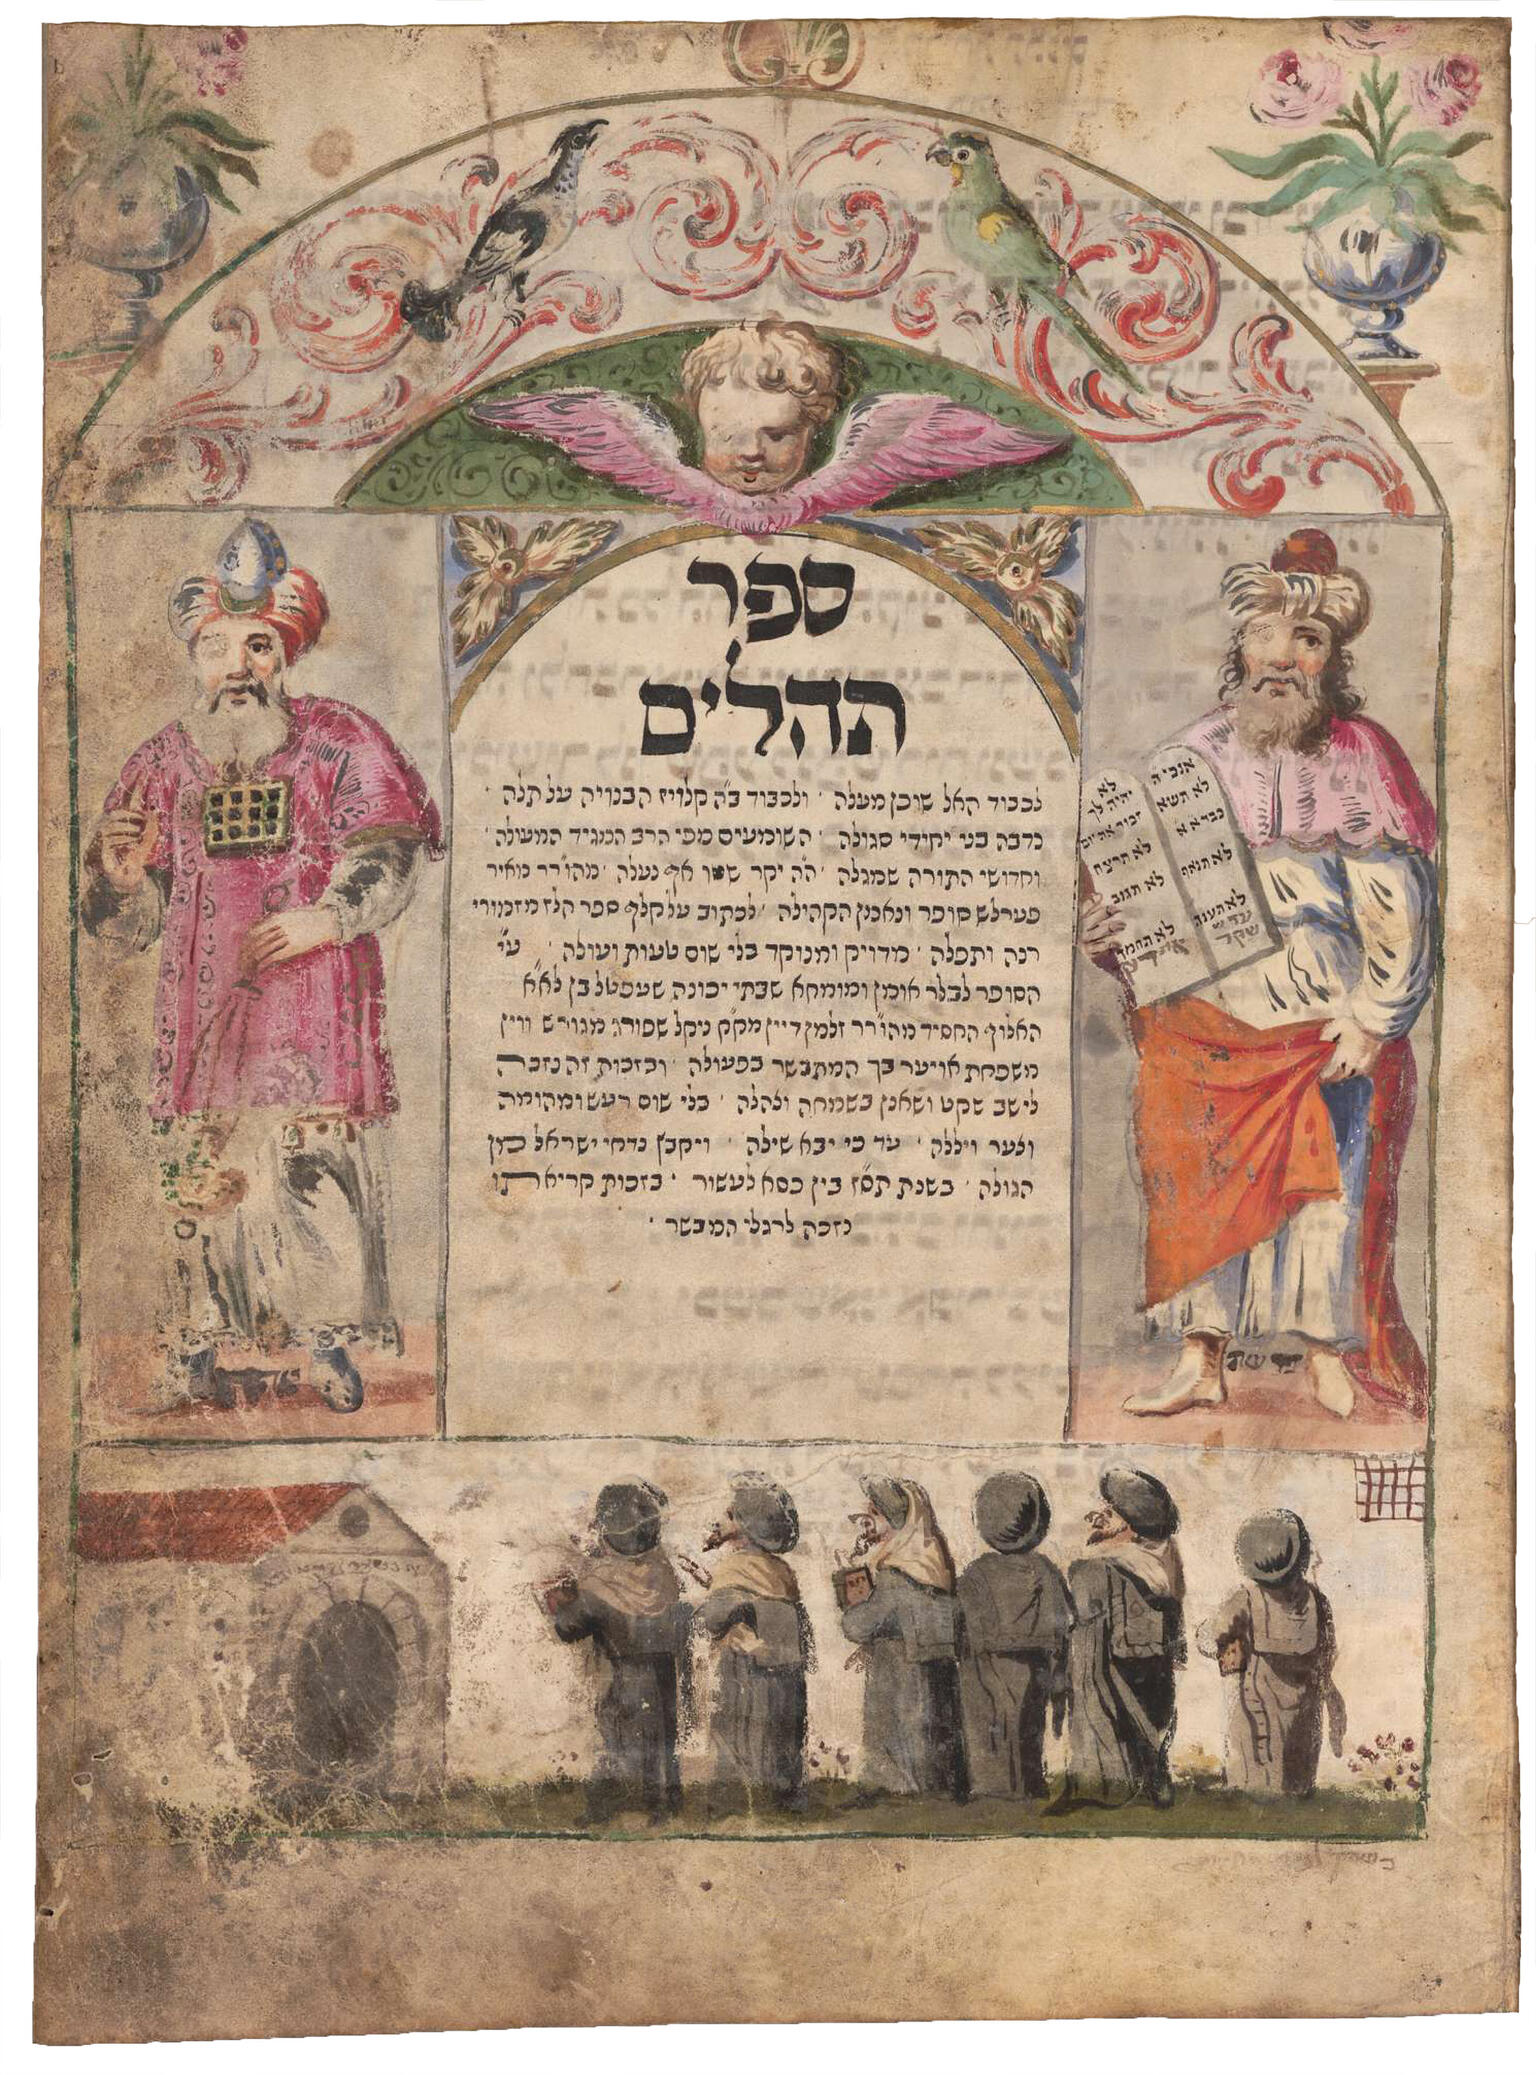 ספר
תהלים
לכבוד האל שוכן מעלה ולכבוד ב״ה קלויז הבנויה על תלה
נדבה בני יחידי סגולה השומעים מפי הרב המגיד המעולה
וחדושי התורה שמגלה ה״ה יקר שמו אף נעלה מהו׳רר מאיר
פערלש סופר ונאמן הקהילה לכתוב על קלף ספר הלז מזמורי
רנה ותפלה מדויק ומנוקד בלי שום טעות ועולה ע״י
הסופר לבלר אומן ומומחא שבתי יכונה שעפטל בן לא״א
האלוף החסיד מהו׳רר זלמן דיין מק״ק ניקלשפורג מגורש ווין
משפחת אויער בך המתבשר בפעולה ובזכות זה נזכה
לישב שקט ושאנן בשמחה וצהלה בלי שום רעש ומהומה
וצער ויללה עד כי יבא שילה ויקבץ נדחי ישראל מן
הגולה בשנת תס״ז בין כסא לעשור בזכות קריאתו
נזכה לרגלי המבשר
אנכי ה
לא תשא
כבד א א
לא תנאף
לא תענה
עד ש
שקר
לא
יהיה לך
זכיר את יום
לא תרצח
לא תגוב
לא תחמד